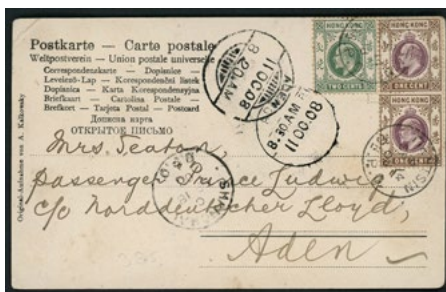 Postkarte — Carte postale
Weltpostverein — Union postale universelle
Correspondenzkarte — Dopisnice —
Levelező-Lap — Korespondenśni listek
Dopisnica — Karta Korespondencyjna
Briefkaart — Cartolina Postale —
Brefkort — Tarjeta Postal — Postcard
Дописна карта
ОТКРЫТОЕ ПИСЬМО
Original-Aufnahme von A.
HONG KONG
TWO CENTS
HONG KONG
ONE CENT
HONG KONG
ONE CENT
8.20AM
11 OC.08
8.30.AM
11 OC.08
Mrs. Seaton,
Passenger Prince Ludwig
c/o Norddeutscher Lloyd,
Aden
SHANGHAI